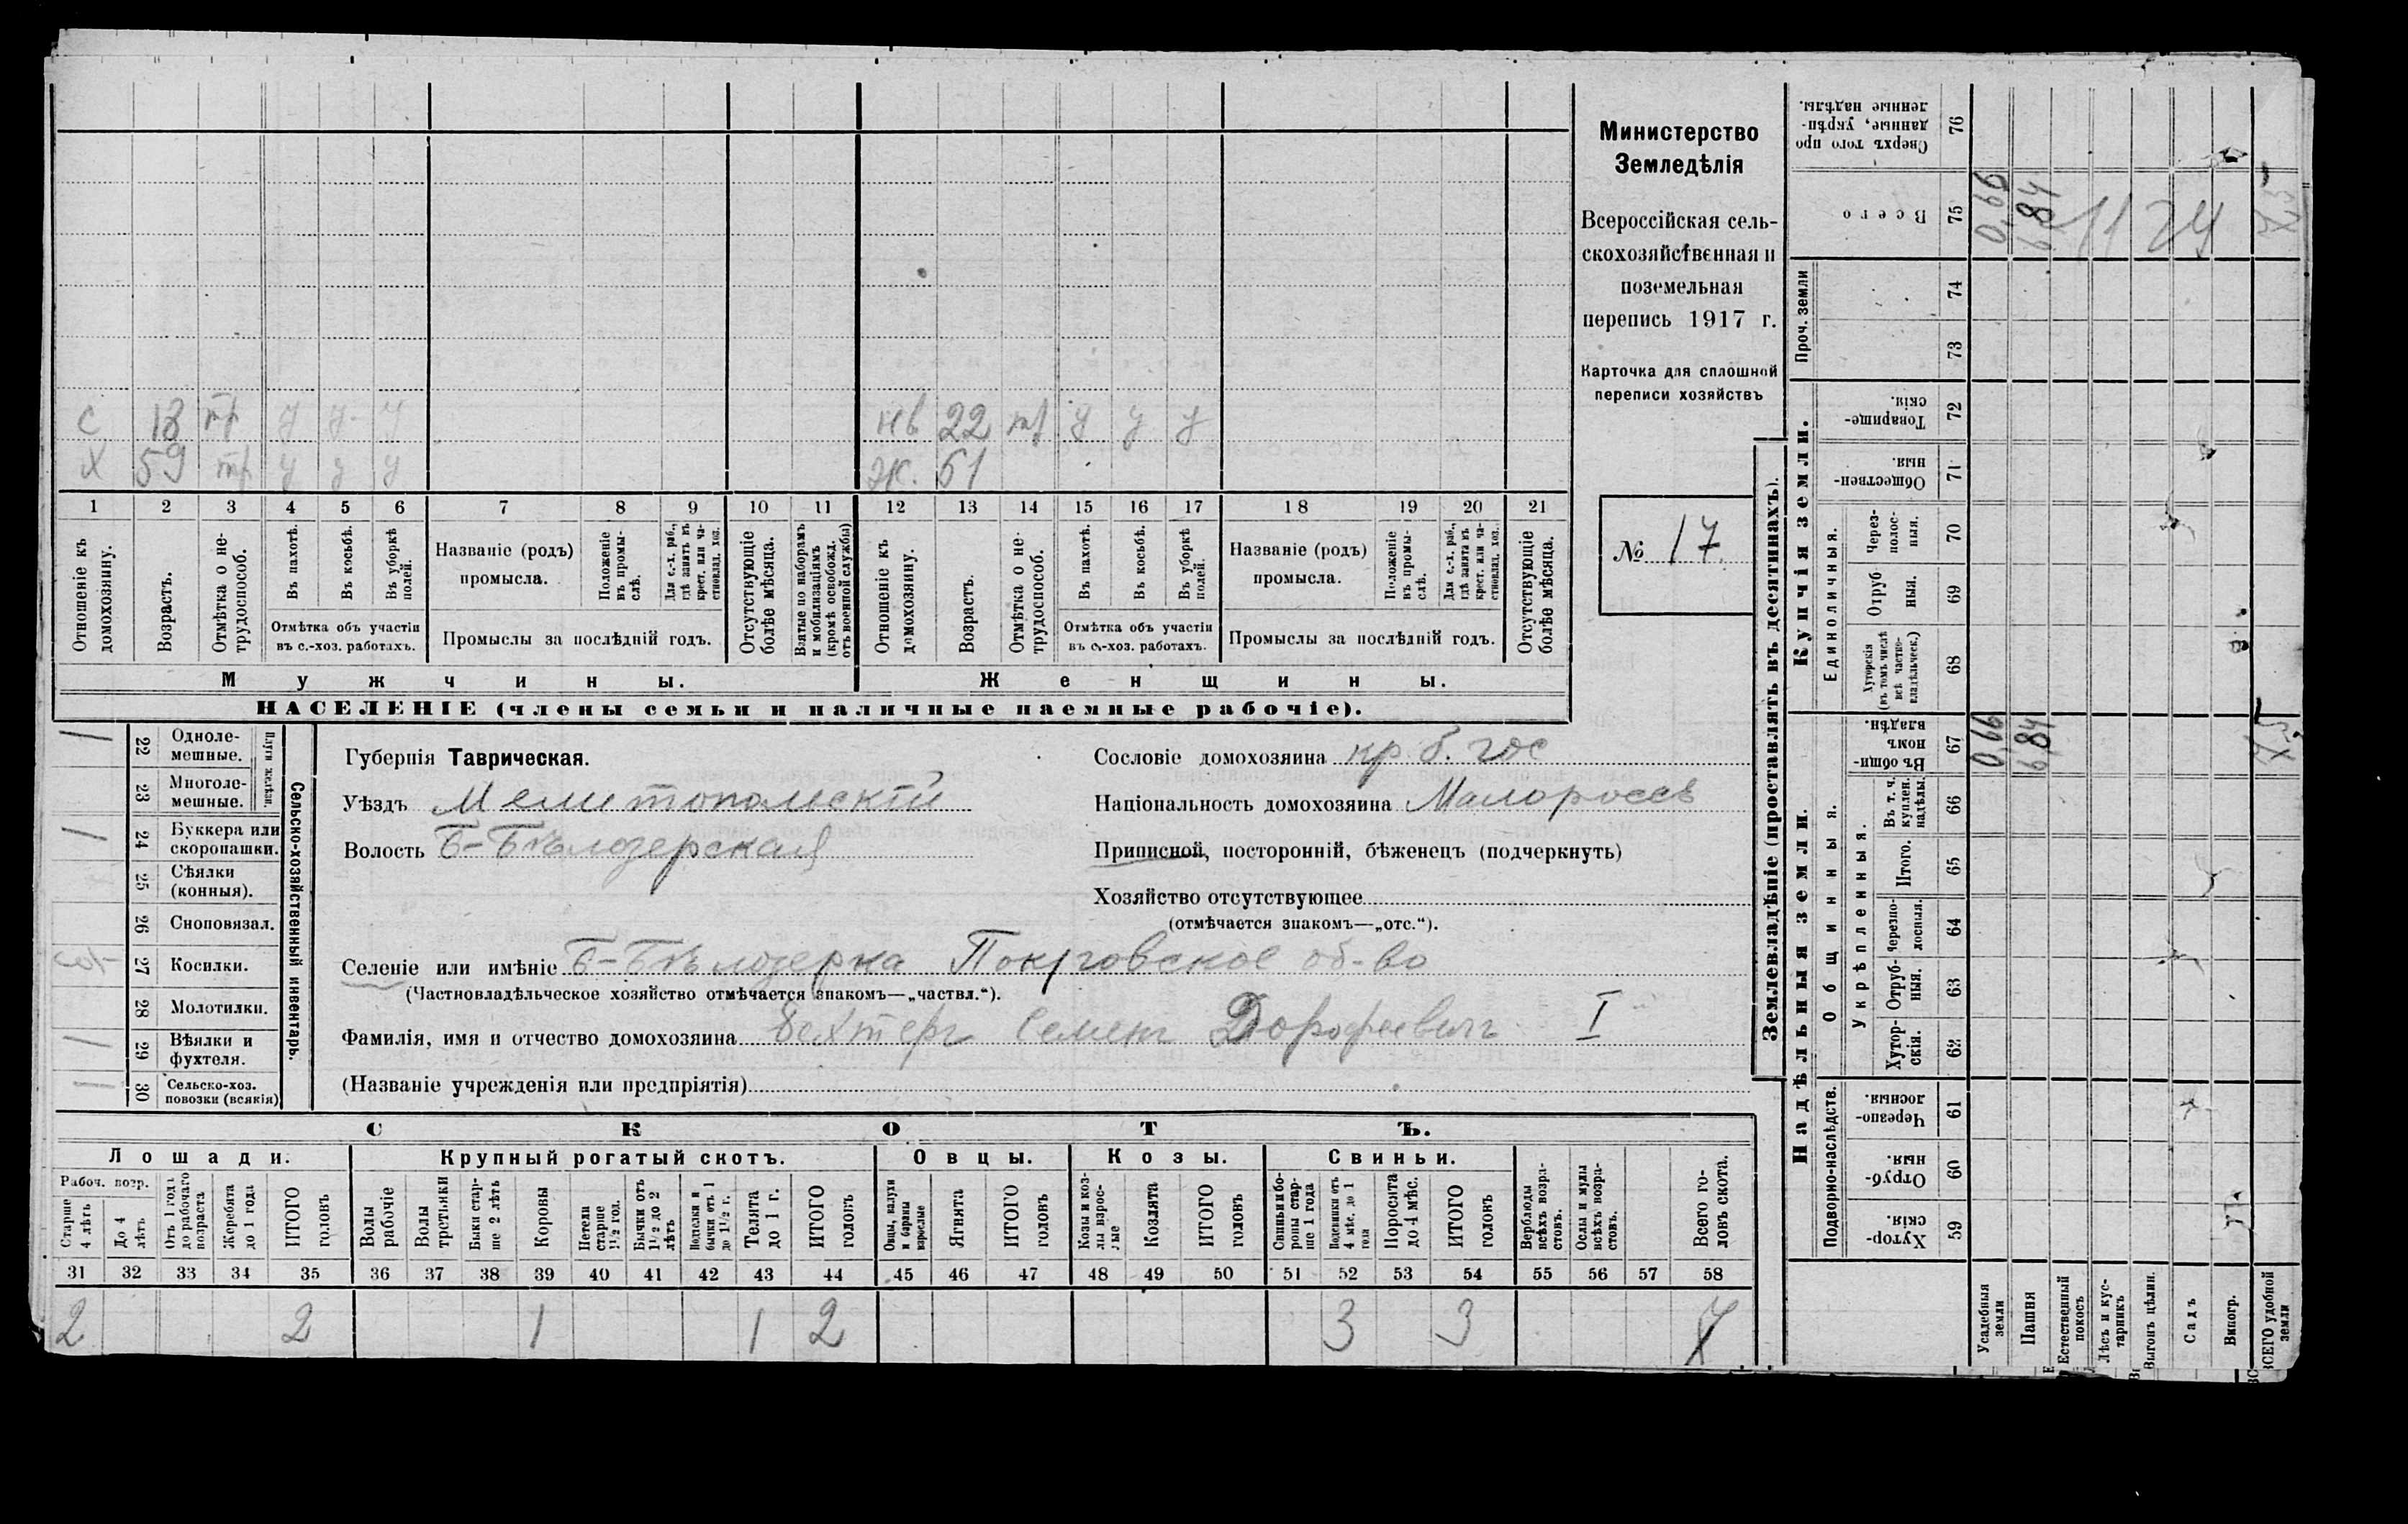 Министерство
Земледѣлія
Всероссійская сель-
скохозяйственная и
поземельная
перепись 1917 г.
Карточка для сплошной
переписи хозяйствъ
№ 17
с 18 тр у у у
нв 22 тр у у у
х 59 тр у у у
ж. 61
1 2 3 4 5 6 7 8 9 10 11 12 13 14 15 16 17 18 19 20 21
Отношеніе къ домохозяину.
Возрастъ.
Отмѣтка о не-трудоспособ.
Въ пахотѣ.
Въ косьбѣ.
Въ уборкѣ полей.
Отмѣтка объ участіи
въ с.-хоз. работахъ.
Названіе (родъ)
промысла.
Положеніе въ промы-слѣ.
Для с.-х. раб., гдѣ занятъ въ крест. или ча-стновлад. хоз.
Промыслы за послѣдній годъ.
Отсутствующіе болѣе мѣсяца.
Взятые по наборамъ и мобилизаціямъ (кромѣ освобожд. отъ военной службы)
Отношеніе къ домохозяину.
Возрастъ.
Отмѣтка о не-трудоспособ.
Въ пахотѣ.
Въ косьбѣ.
Въ уборкѣ полей.
Отмѣтка объ участіи
въ с.-хоз. работахъ.
Названіе (родъ)
промысла.
Положеніе въ промы-слѣ.
Для с.-х. раб., гдѣ занята въ крест. или ча-стновлад. хоз.
Промыслы за послѣдній годъ.
Отсутствующіе болѣе мѣсяца.
Мужчины.
Женщины.
НАСЕЛЕНІЕ (члены семьи и наличные наемные рабочіе).
Сельско-хозяйственный инвентарь.
Плуги желѣзн.
1 22 Одноле-мешные.
23 Многоле-мешные.
1 24 Буккера или скоропашки.
25 Сѣялки (конныя).
26 Сноповязал.
27 Косилки.
28 Молотилки.
1 29 Вѣялки и фухтеля.
1 30 Сельско-хоз. повозки (всякія)
Губернія Таврическая.
Уѣздъ Мелитопольскій
Волость Б-Бѣлозерская
Сословіе домохозяина кр. б. гос
Національность домохозяина Малороссъ
Приписной, посторонній, бѣженецъ (подчеркнуть)
Хозяйство отсутствующее
(отмѣчается знакомъ—„отс.“).
Селеніе или имѣніе Б-Бѣлозерка Покровское об-во
(Частновладѣльческое хозяйство отмѣчается знакомъ—„частвл.“).
Фамилія, имя и отчество домохозяина Бехтеръ Семенъ Дорофеевичъ I
(Названіе учрежденія или предпріятія)
СКОТЪ.
Лошади.
Крупный рогатый скотъ.
Овцы.
Козы.
Свиньи.
Рабоч. возр.
Старше 4 лѣтъ
До 4 лѣтъ
Отъ 1 года до рабочаго возраста
Жеребята до 1 года
ИТОГО головъ
Волы рабочіе
Волы третьяки
Быки стар-ше 2 лѣтъ
Коровы
Нетели старше 1½ год.
Бычки отъ 1½ до 2 лѣтъ
Подтелки и бычки отъ 1 до 1½ г.
Телята до 1 г.
ИТОГО головъ
Овцы, валухи и бараны взрослые
Ягнята
ИТОГО головъ
Козы и коз-лы взрос-лые
Козлята
ИТОГО головъ
Свиньи и бо-ровы стар-ше 1 года
Подсвинки отъ 4 мѣс. до 1 года
Поросята до 4 мѣс.
ИТОГО головъ
Верблюды всѣхъ возра-стовъ.
Ослы и мулы всѣхъ возра-стовъ.
Всего го-ловъ скота.
31 32 33 34 35 36 37 38 39 40 41 42 43 44 45 46 47 48 49 50 51 52 53 54 55 56 57 58
2 2 1 1 2 3 3 7
Землевладѣніе (проставлять въ десятинахъ).
Купчія земли.
Надѣльныя земли.
Сверхъ того про-данные, укрѣп-ленные надѣлы. 76
Всего 75 0,66 6,84 11 24
Проч. земли 74
73
Товарище-скія. 72
Обществен-ныя. 71
Единоличныя.
Через-полос-ныя. 70
Отруб-ныя. 69
Хуторскія (въ томъ числѣ всѣ частно-владѣльческ.) 68
Общинныя.
Въ общин-номъ владѣн. 67 0,66 6,84
Укрѣпленныя.
Въ т. ч. куплен. надѣлы. 66
Итого. 65
Черезпо-лосныя. 64
Отруб-ныя. 63
Хутор-скія. 62
Подворно-наслѣдств.
Черезпо-лосныя. 61
Отруб-ныя. 60
Хутор-скія. 59
Усадебныя земли
Пашня
Естественный покосъ
Лѣсъ и кус-тарникъ
Выгонъ цѣлин.
Садъ
Виногр.
ВСЕГО удобной земли